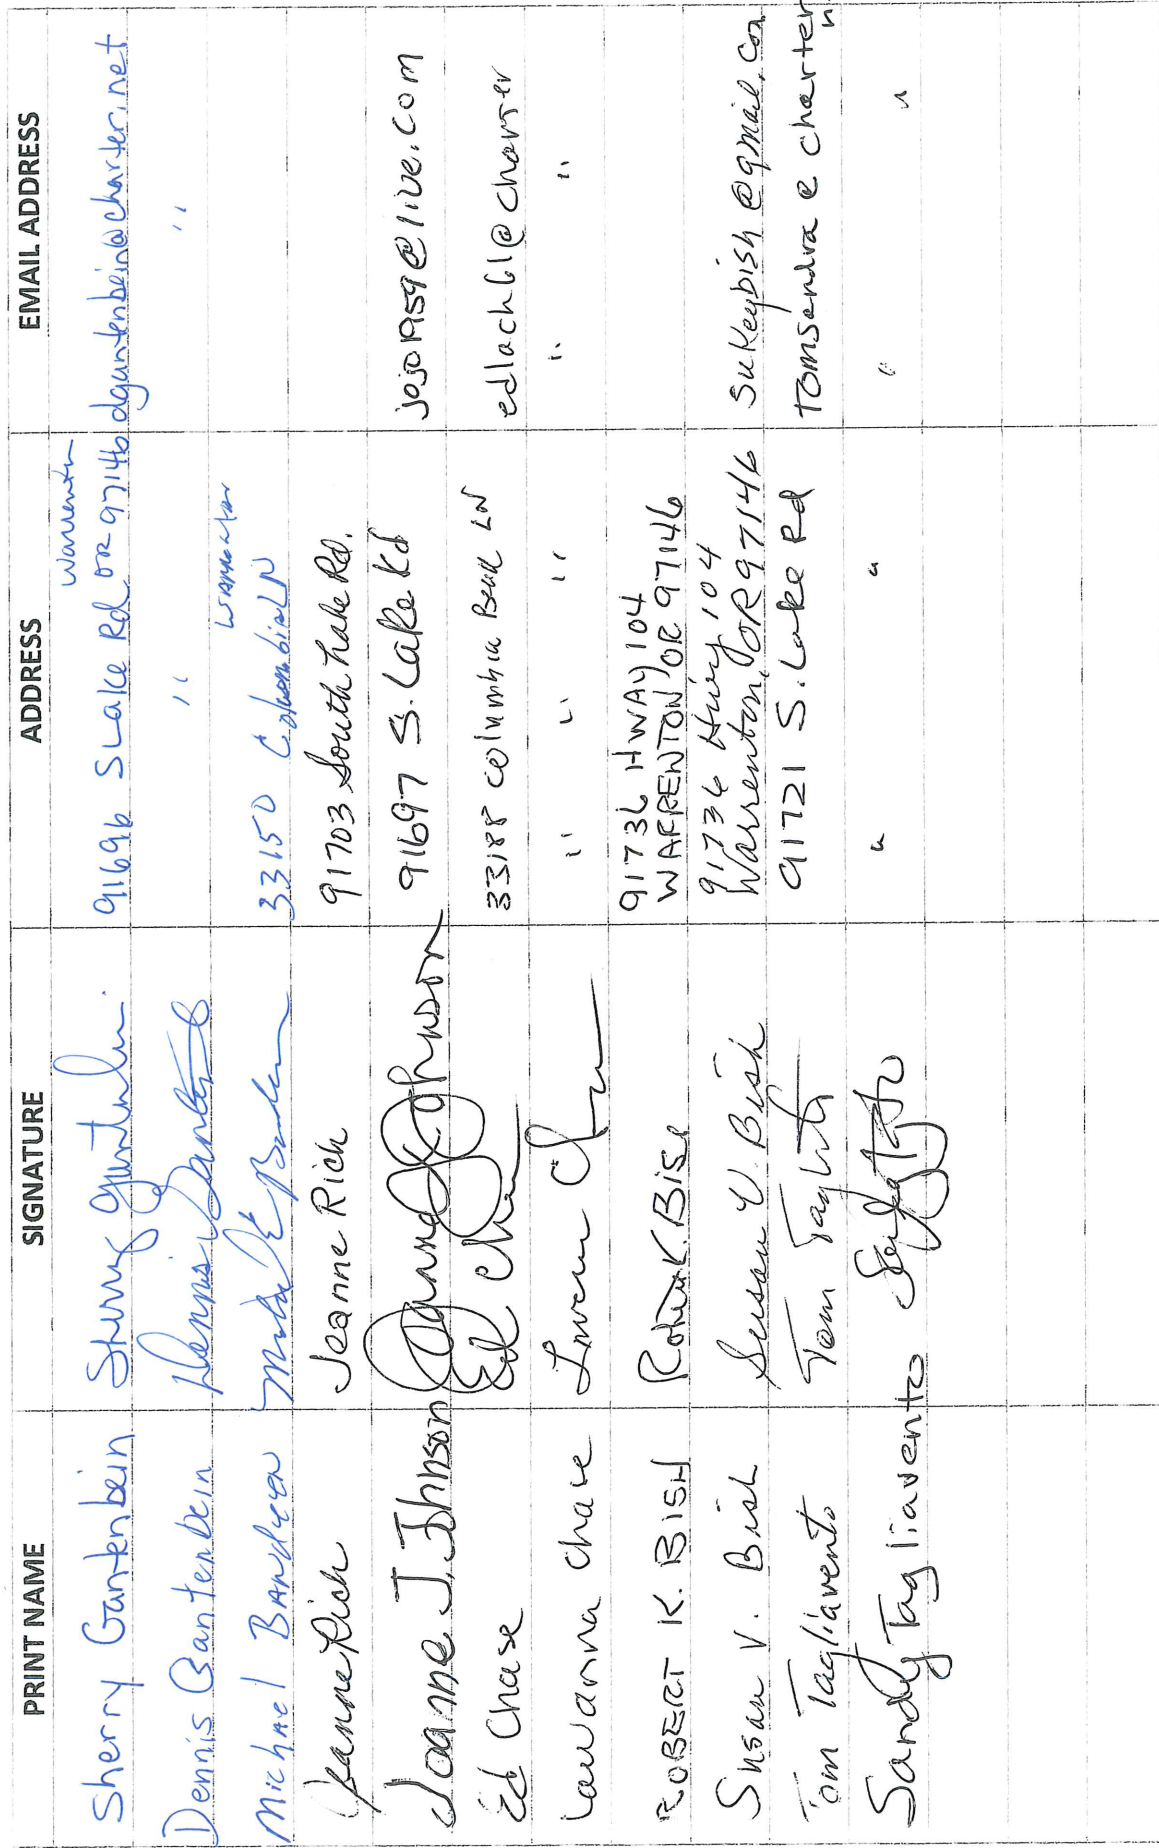 PRINT NAME SIGNATURE ADDRESS EMAIL ADDRESS
Warrenton
Sherry Gantenbein Sherry Gantenbein 91696 S Lake Rd OR 97146 dgantenbein@charter.net
Dennis Gantenbein Dennis Gantenbein " "
Warrenton
Michael 33150 Columbia LN
Jeanne Rich Jeanne Rich 91703 South Lake Rd.
Joanne J. Johnson Joanne J. Johnson 91697 S. Lake Rd jojo1959@live.com
Ed Chase Ed Chase 33188 Columbia Beach LN edlach61@charter
Lawanna Chase " " " " "
ROBERT K. BISH Robert K. Bish 91736 HWAY 104
WARRENTON OR 97146
Susan V. Bish Susan V. Bish 91736 Hwy 104
Warrenton, OR 97146 sukeybish@gmail.com
Tom Tagliavento Tom 91721 S. Lake Rd tomsandra@charter
n
Sandy Tagliavento " " " "